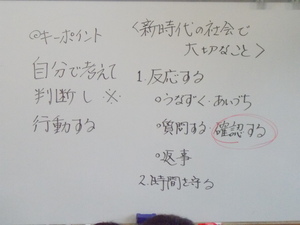 ◎キーポイント
自分で考えて
判断し ※
行動する
〈新時代の社会で
大切なこと〉
1.反応する
○うなずく・あいづち
○質問する 確認する
○返事
2.時間を守る